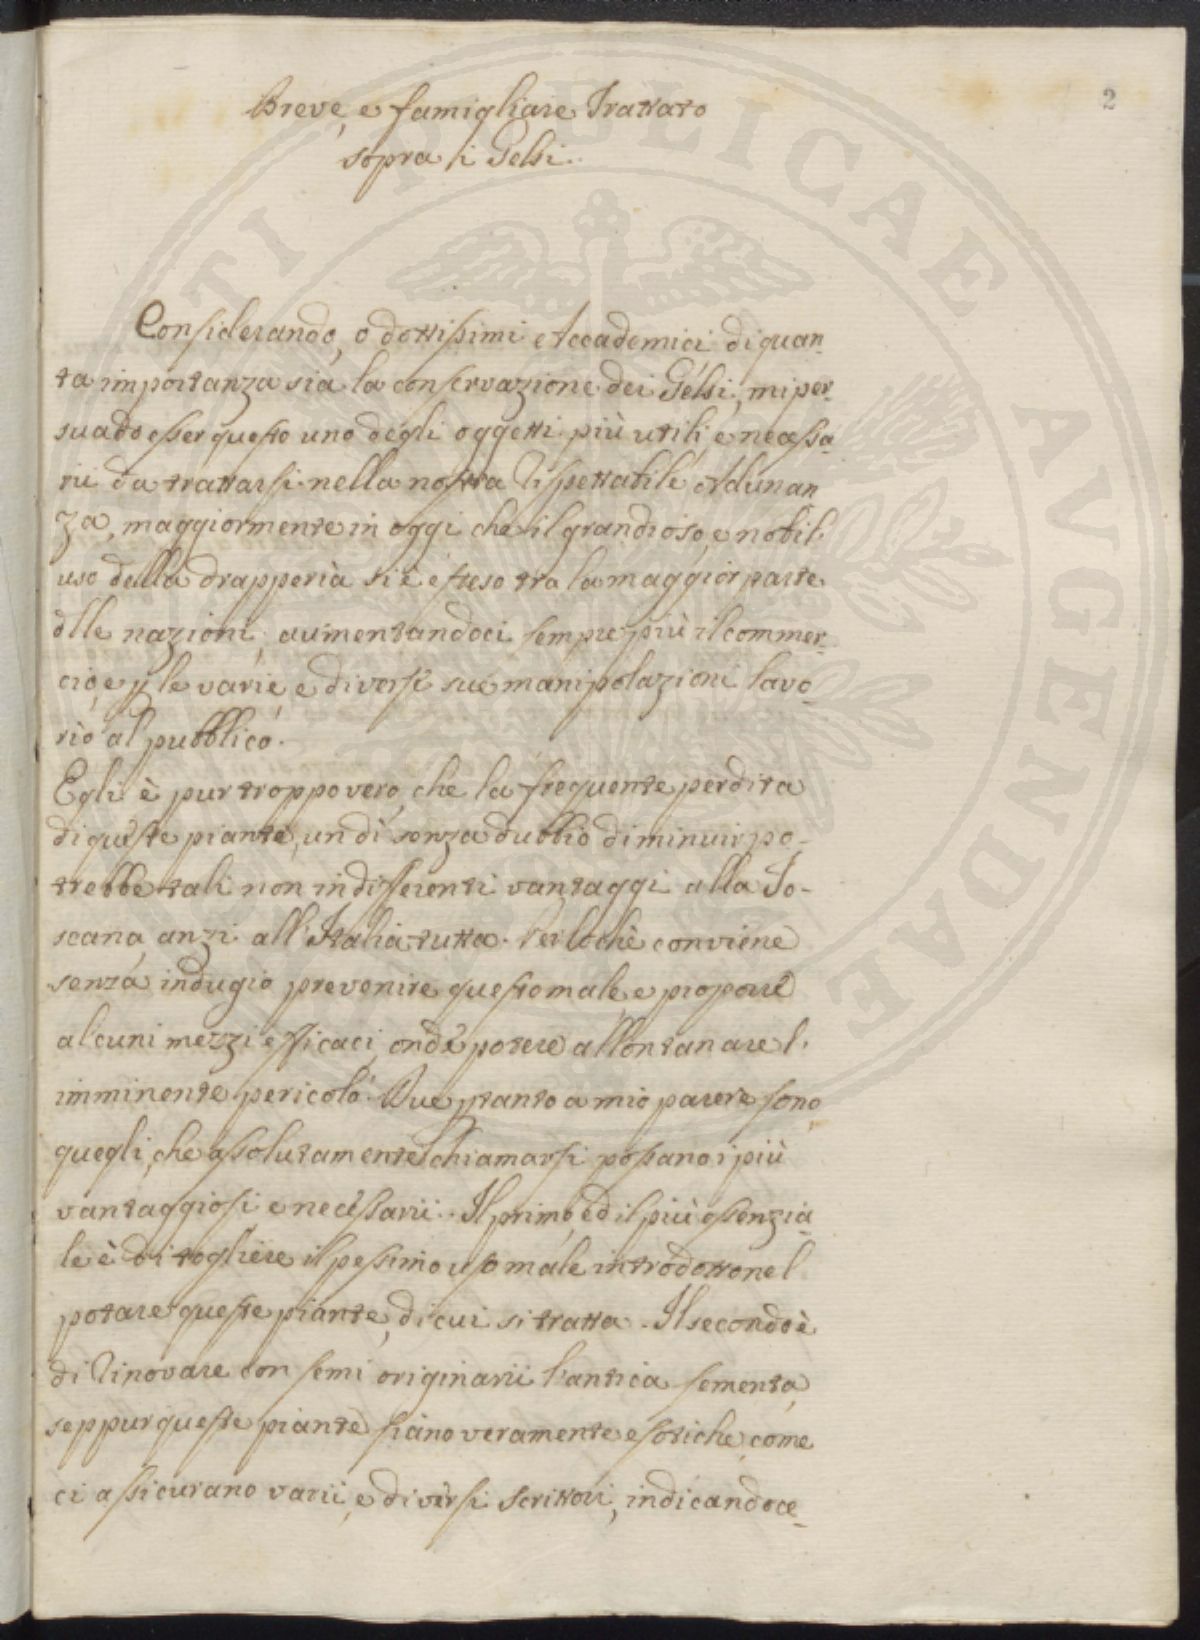 2
Breve, e famigliare Trattato
sopra li Gelsi.
Considerando, o dottissimi Accademici di quan-
ta importanza sia la conservazione dei Gelsi, mi per-
suado esser questo uno degli oggetti più utili, e necessa-
rii da trattarsi nella nostra Rispettabile Adunan
za, maggiormente in oggi che il grandioso, e nobil
uso della drapperia si è esteso tra la maggior parte
dlle nazioni, aumentandoci sempre più il commer-
cio, e p le varie, e diverse sue manipolazioni lavo-
rio al pubblico.
Egli è pur troppo vero, che la frequente perdita
di queste piante, un dì senza dubbio diminuir po-
trebbe tali non indifferenti vantaggi alla To-
scana, anzi all'Italia tutta. Perlochè conviene
senza indugio prevenire questo male, e proporre
alcuni mezzi efficaci, onde potere allontanare l'
imminente pericolo. Due ptanto a mio parere sono
quegli, che assolutamente chiamarsi possano i più
vantaggiosi e necessarii. Il primo, ed il più essenzia-
le è di togliere il pessimo uso male introdotto nel
potare queste piante, di cui si tratta. Il secondo è
di rinovare con semi originarii l'antica sementa,
seppur queste piante siano veramente esotiche, come
ci assicurano varii, e diversi scrittori, indicandoce-
TI PUBLICAE AVGENDAE